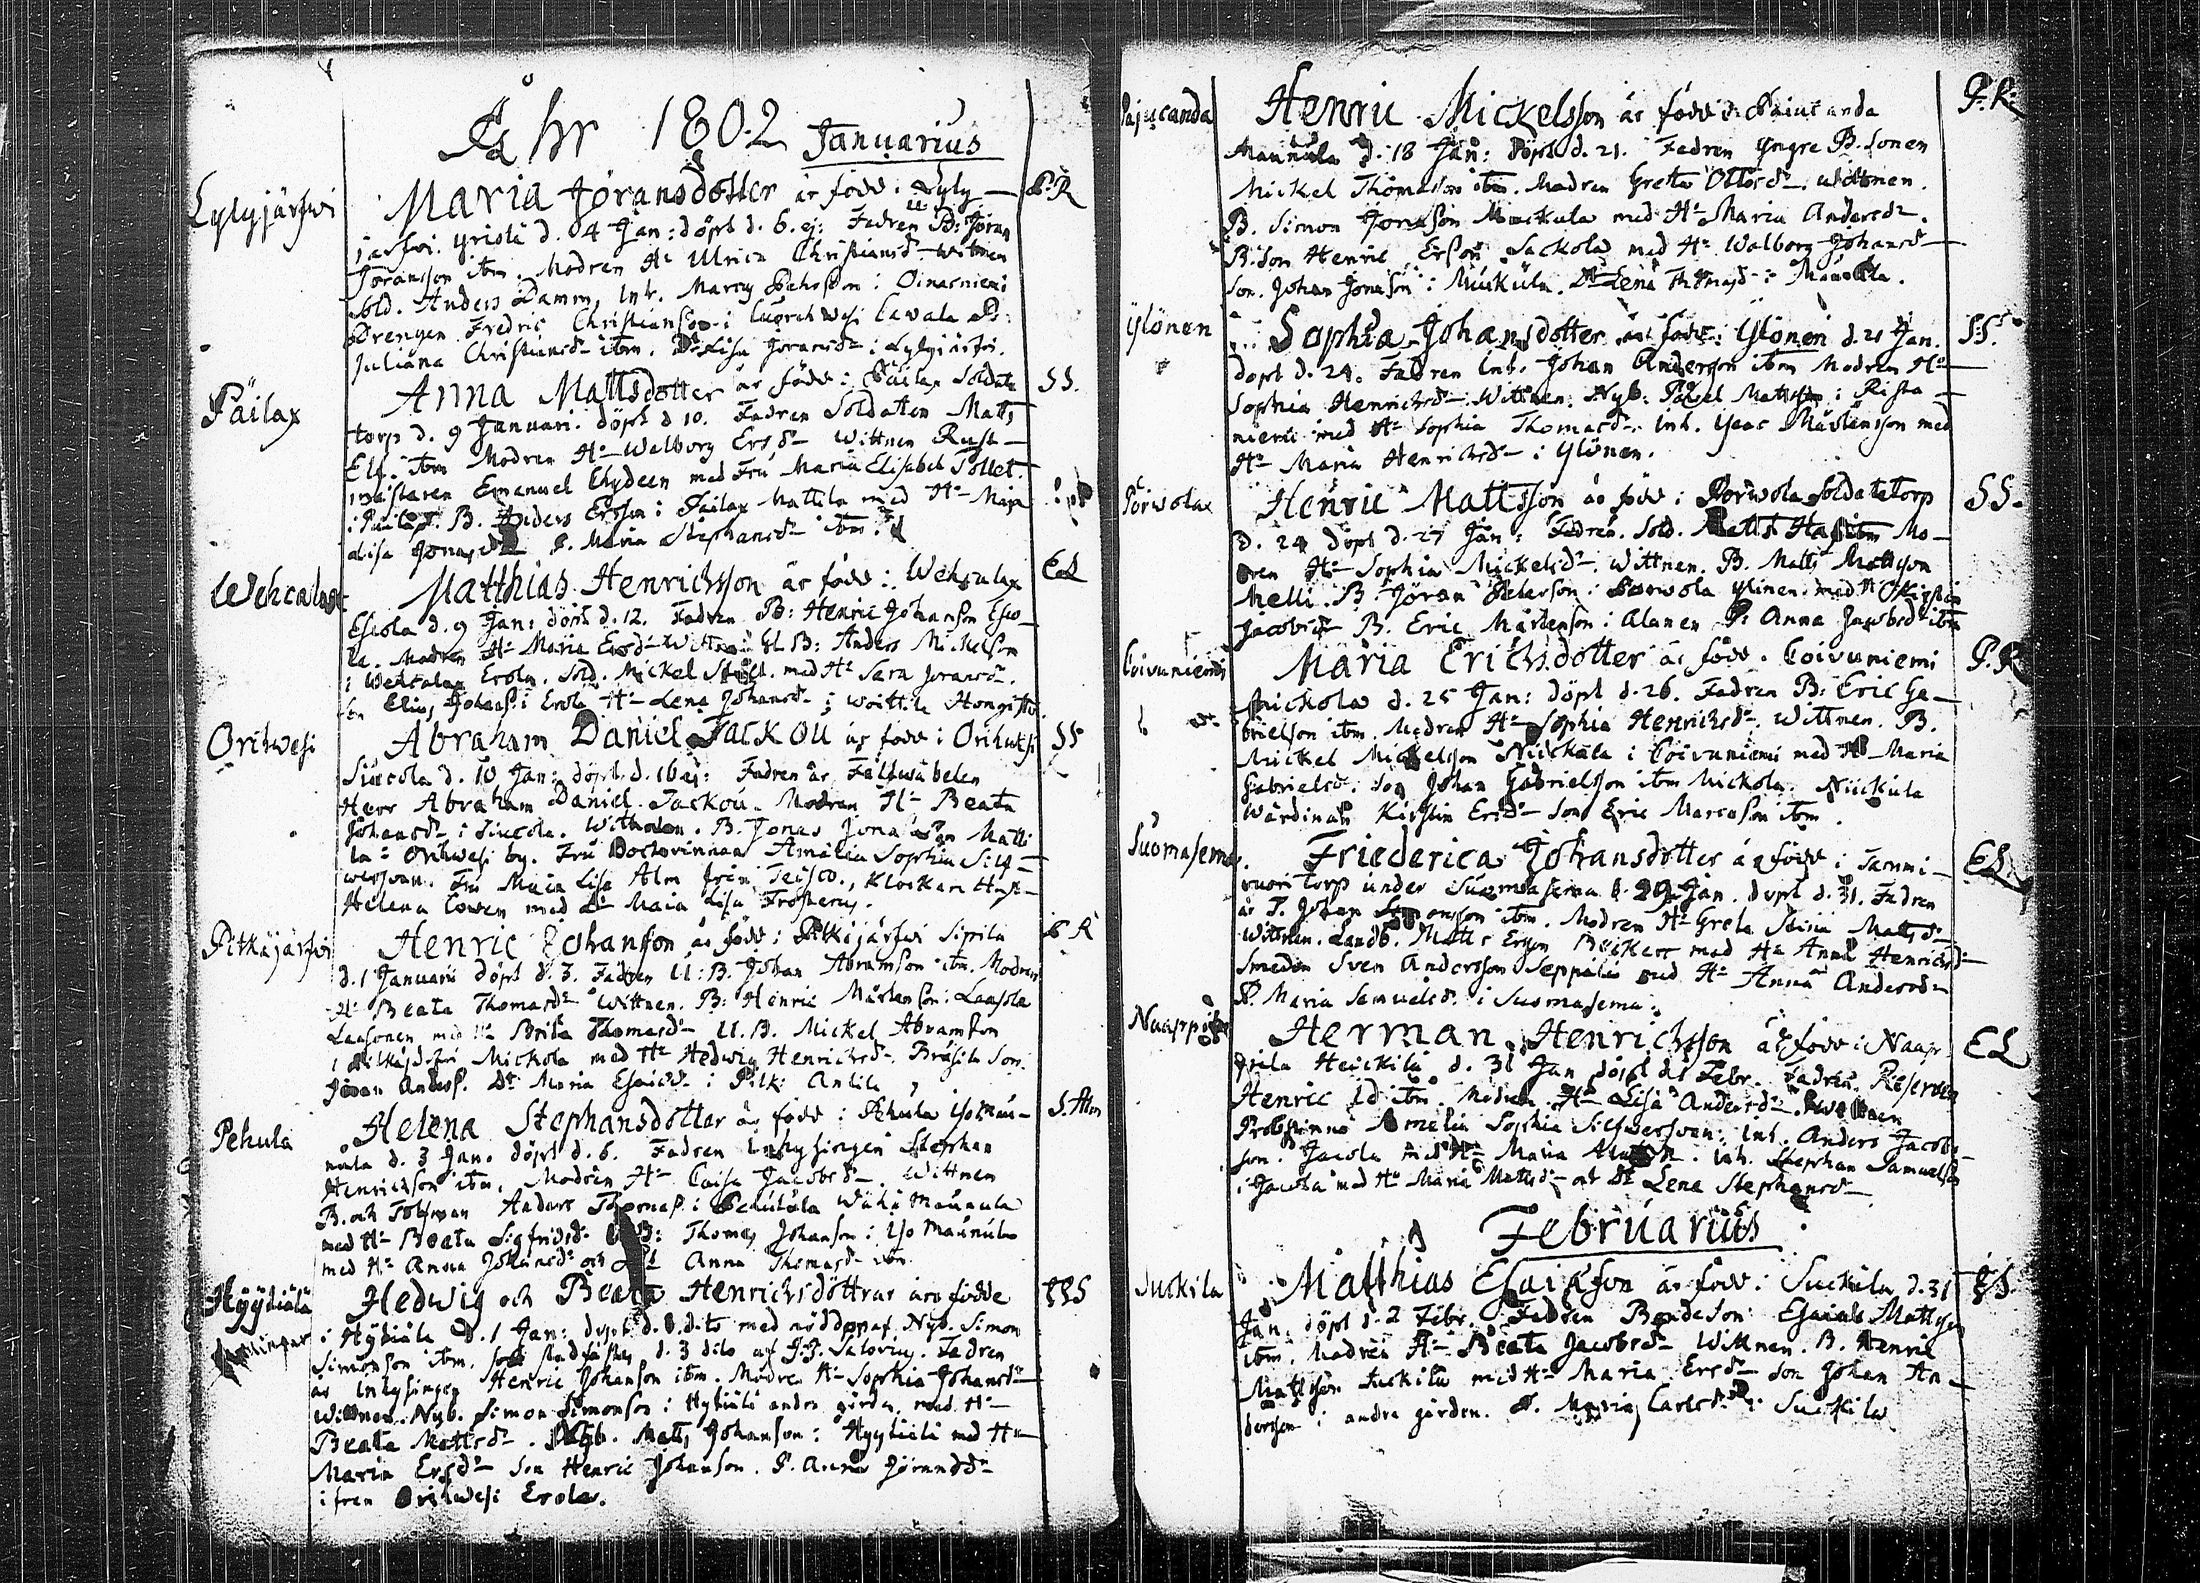 Åhr 1802 Januarius
Lylyjärfwi
Maria Jöransdotter är född i Lyly P.R
järfwi Yristi d. 4 Jan: döpt d. 6. ej: Fadren B: Jöran
Joransson ibm. Modren Hu Ulrica Christiansd. Witnen
Sold. Anders Damm, Inh. Marcus Pehrsson i Oinasniemi
Drengen Fredric Christiansson i Cavala P:
Juliana Christiansdr ibm. Dr Lisa Joransdr i Lylyjärfwi.
Päilax
Anna Mattsdotter är född i Päilax Soldate SS.
torp d. 9 Januari. döpt d 10. Fadren Soldaten Matts
Elf. ibm Modren Hu Walborg Ersdr Wittnen Rust
mästaren Emanuel Chydeen med Fru Maria Elisabet Tollet
i Päilax. B. Anders Ersson i Pailax Mattila med Hu Maja
Lisa P. Maria Stephansdr ibm.
Wehcalax
Matthias Henricsson är född i Wehcalax EL
Escola d. 9 Jan: döpt d. 12. Fadren B: Henric Johansson Esco
la. Modren Hu Maria Ersdr Wittnen B: Anders Mickelsson
i Wehcalax Erola. Sold. Mickel med Hu Sara Joransdr.
son Elias Johanss. i Erola Hu Lena Johansdr i Woittila Hongisto
Orihwesi
Abraham Daniel Jackou är född i Orihwesi SS
Siucola d. 10 Jan: döpt d. 16 ej: Fadren är Fältwäbelen
Herr Abraham Daniel Jackou. Modren Hu Beata
Johansdr i Siucola. Wittnen. B. Jonas Jonasson Matti
la Orihwesi by. Fru Doctorinnan Amalia Sophia Silf
wersvan. Fru Maia Lisa Alm från Teisco., Klockare Hust.
Helena Cowen med Dr Maia Lisa Frosterus.
Pitkäjärfwi
Henric Johansson är född i Pitkäjärfwi Sipila P R
d. 1 Januarii döpt d. 3. Fadren U: B. Johan Abramsson ibm. Modren
Hu Beata Thomasdr Wittnen. B: Henric Mårtensson i Laasola
Laasonen med Hu Brita Thomasdr U. B. Mickel Abramsson
i Pitkäjärfwi Mickola med Hu Hedwig Henricsdr. Bräsila Son
Johan Anders. Dr Maria Esaiedr i Pitk: Antila
Pehula
Helena Stephansdotter är född i Pehula Isomau S. Alm
nula d. 3 Jan. döpt d. 6. Fadren Inhysingen Stephan
Henricsson ibm. Modren Hu Caisa Jacobsdr. Wittnen
B. och Tolfman Anders Thomas. i Wähä Maunula
med Hu Beata Sigfridsdr B: Thomas Johansson i Iso Maunula
med Hu Anna Johansdr och Anna Thomasdr ibm
Hyytiälä
Twillingar
Hedwig och Beata Henricsdöttrar äro födde SS
i Hytiälä d. 1 Jan: döpt d. d. dito med nöddopet af Nyb. Simon
Simonsson ibm. som stadfästes d. 3 dito af J. Z. Salovius. Fadren
är Inhysingen Henric Johansson ibm. Modren Hu Sophia Johansdr
Wittnen. Nyb. Simon Simonsson i Hytiälä andra gården med Hu
Beata Mattsdr. Nyb. Matts Johansson i Hyytiälä med Hu
Maria Ersdr Son Henric Johansson. P. Anna Jöransdr
ifrån Orihwesi Erola.
Pajucanda
Henric Mickelsson är född i Pajucanda P.R:
Maunula d. 18 Jan: döpt d. 21. Fadren Yngre B. sonen
Mickel Thomasson ibm. Modren Greta Ottosdr. Wittnen.
B. Simon Jonasson Muckula med Hu Maria Andersdr.
B: Son Henric Ersson Sackola med Hu Walborg Johansdr
Son. Johan Jonasson i Muckula. Dr Lena Thomasdr i Maunula.
Ylönen
Sophia Johansdotter är född i Ylönen d. 21 Jan. SS.
döpt d. 24. Fadren Inh. Johan Andersson ibm Modren Hu
Sophia Henricsdr. Wittnen. Nyb: Påvel Mattsson i Rista
niemi med Hu Sophia Thomasdr. Inh. Isac Mårtensson med
Hu Maria Henricsdr i Ylönen.
Pörwola
Henric Mattsson är född i Porwola Soldatetorp SS.
d. 24 döpt d. 27 Jan: Fadren Sold. Matts ibm Mo
dren Hu Sophia Mickelsdr. Wittnen. B. Matts Mattsson
Melli. B. Jöran Petersson i Porwola Ylinen med Hu Kirstin
Jacobsdr B. Eric Mårtensson i Alanen P: Anna Jacobsdr ibm
Coivuniemi
Maria Ericsdotter är född i Coivuniemi P.R
Mickola d. 25 Jan: döpt d. 26. Fadren B: Eric Ga
brielsson ibm. Modren Hu Sophia Henricsdr. Wittnen. B.
Mickel Mickelsson Niickala i Coivuniemi med Hu Maria
Gabrielsdr. Son Johan Gabrielsson ibm Mickola. Niickula
Wärdinan Kirstin Ersdr Son Eric Marcusson ibm.
Suomasema
Friederica Johansdotter är född i Tammi EL
vuori Torp under Suomasema d. 29 Jan. döpt d. 31. Fadren
är T. Johan Simonsson ibm. Modren Hu Greta Stina Mattsdr
Wittnen. Landb. Matts Ersson med Hu Anna Henricsdr
Smeden Sven Andersson Seppälä med Hu Anna Andersdr
P. Maria Samuelsdr. i Suomasema.
Naappila
Herman Henricsson är född i Naap EL
pila Heickilä d. 31 Jan döpt d. 1 Febr. Fadren Reserven
Henric Id ibm. Modren Hu Lisa Andersdr. Wittnen
Probstinna Amalia Sophia Silfwersvan: Inh. Anders Jacobs
son. Jacola med Hu Maria. Inh. Stephan Samuelsson
i Jacola med Hu Maria Mattsdr och Dr Lena Stephansdr
Februarius
Suckila
Matthias Esaiasson är född i Suckila d. 31 SS.
Jan. döpt d. 2 Febr. Fadren Bondeson Esaias Mattsson
ibm. Modren Hu Beata Jacobsdr Wittnen. B. Henric
Mattsson Suckila med Hu Maria Ersdr Son Johan An
dersson i andra gården. P. Maria Carlsdr i Suckila